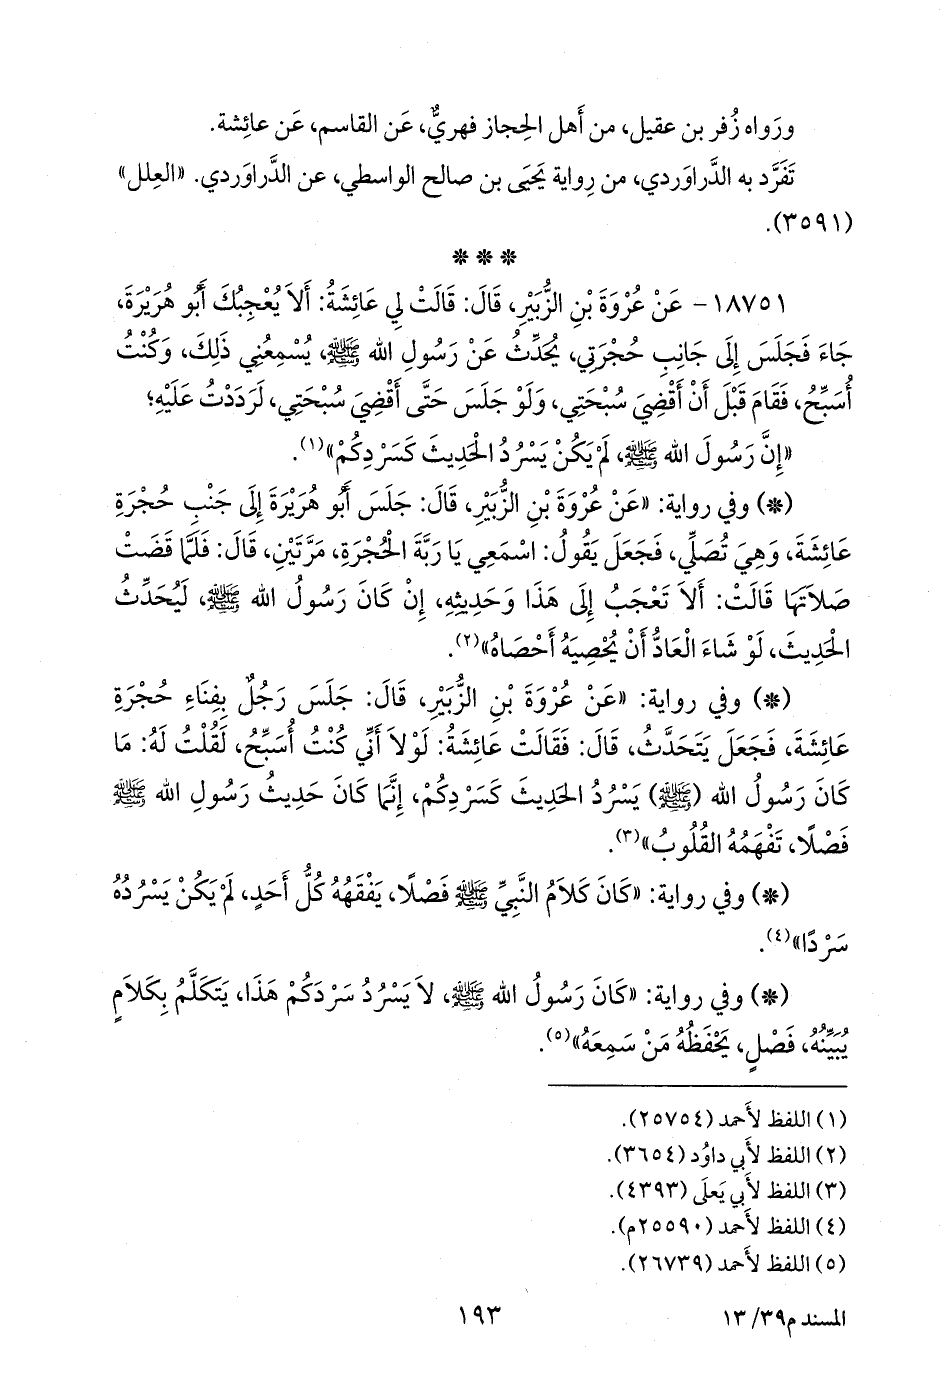 ورَواه زُفر بن عقيل، من أَهل الحِجاز فهريٌّ، عَن القاسم، عَن عائِشة.
تَفَرَّد به الدَّراوَردي، من رِواية يَحيَى بن صالح الواسطي، عن الدَّراوَردي. «العِلل»
(٣٥٩١).
* * *
١٨٧٥١- عَنْ عُرْوَةَ بْنِ الزُّبَيْرِ، قَالَ: قَالَتْ لِي عَائِشَةُ: أَلاَ يُعْجِبُكَ أَبُو هُرَيْرَةَ،
جَاءَ فَجَلَسَ إِلَى جَانِبِ حُجْرَتِي، يُحَدِّثُ عَنْ رَسُولِ الله ﷺ، يُسْمِعُنِي ذَلِكَ، وَكُنْتُ
أُسَبِّحُ، فَقَامَ قَبْلَ أَنْ أَقْضِيَ سُبْحَتِي، وَلَوْ جَلَسَ حَتَّى أَقْضِيَ سُبْحَتِي، لَرَدَدْتُ عَلَيْهِ؛
«إِنَّ رَسُولَ الله ﷺ، لَمْ يَكُنْ يَسْرُدُ الْحَدِيثَ كَسَرْدِكُمْ»(١).
(*) وفي رواية: «عَنْ عُرْوَةَ بْنِ الزُّبَيْرِ، قَالَ: جَلَسَ أَبُو هُرَيْرَةَ إِلَى جَنْبِ حُجْرَةِ
عَائِشَةَ، وَهِيَ تُصَلِّي، فَجَعَلَ يَقُولُ: اسْمَعِي يَا رَبَّةَ الْحُجْرَةِ، مَرَّتَيْنِ، قَالَ: فَلَمَّا قَضَتْ
صَلاَتَهَا قَالَتْ: أَلاَ تَعْجَبُ إِلَى هَذَا وَحَدِيثِهِ، إِنْ كَانَ رَسُولُ الله ﷺ، لَيُحَدِّثُ
الْحَدِيثَ، لَوْ شَاءَ الْعَادُّ أَنْ يُحْصِيَهُ أَحْصَاهُ»(٢).
(*) وفي رواية: «عَنْ عُرْوَةَ بْنِ الزُّبَيْرِ، قَالَ: جَلَسَ رَجُلٌ بِفِنَاءِ حُجْرَةِ
عَائِشَةَ، فَجَعَلَ يَتَحَدَّثُ، قَالَ: فَقَالَتْ عَائِشَةُ: لَوْلاَ أَنِّي كُنْتُ أُسَبِّحُ، لَقُلْتُ لَهُ: مَا
كَانَ رَسُولُ الله (ﷺ) يَسْرُدُ الحَدِيثَ كَسَرْدِكُمْ، إِنَّمَا كَانَ حَدِيثُ رَسُولِ الله ﷺ
فَصْلًا، تَفْهَمُهُ القُلُوبُ»(٣).
(*) وفي رواية: «كَانَ كَلاَمُ النَّبِيِّ ﷺ فَصْلًا، يَفْقَهُهُ كُلُّ أَحَدٍ، لَمْ يَكُنْ يَسْرُدُهُ
سَرْدًا»(٤).
(*) وفي رواية: «كَانَ رَسُولُ الله ﷺ، لاَ يَسْرُدُ سَرْدَكُمْ هَذَا، يَتَكَلَّمُ بِكَلاَمٍ
يُبَيِّنُهُ، فَصْلٍ، يَحْفَظُهُ مَنْ سَمِعَهُ»(٥).
(١) اللفظ لأَحمد (٢٥٧٥٤).
(٢) اللفظ لأَبي داوُد (٣٦٥٤).
(٣) اللفظ لأَبي يَعلَى (٤٣٩٣).
(٤) اللفظ لأَحمد (٢٥٥٩٠م).
(٥) اللفظ لأَحمد (٢٦٧٣٩).
المسند م٣٩/ ١٣
١٩٣